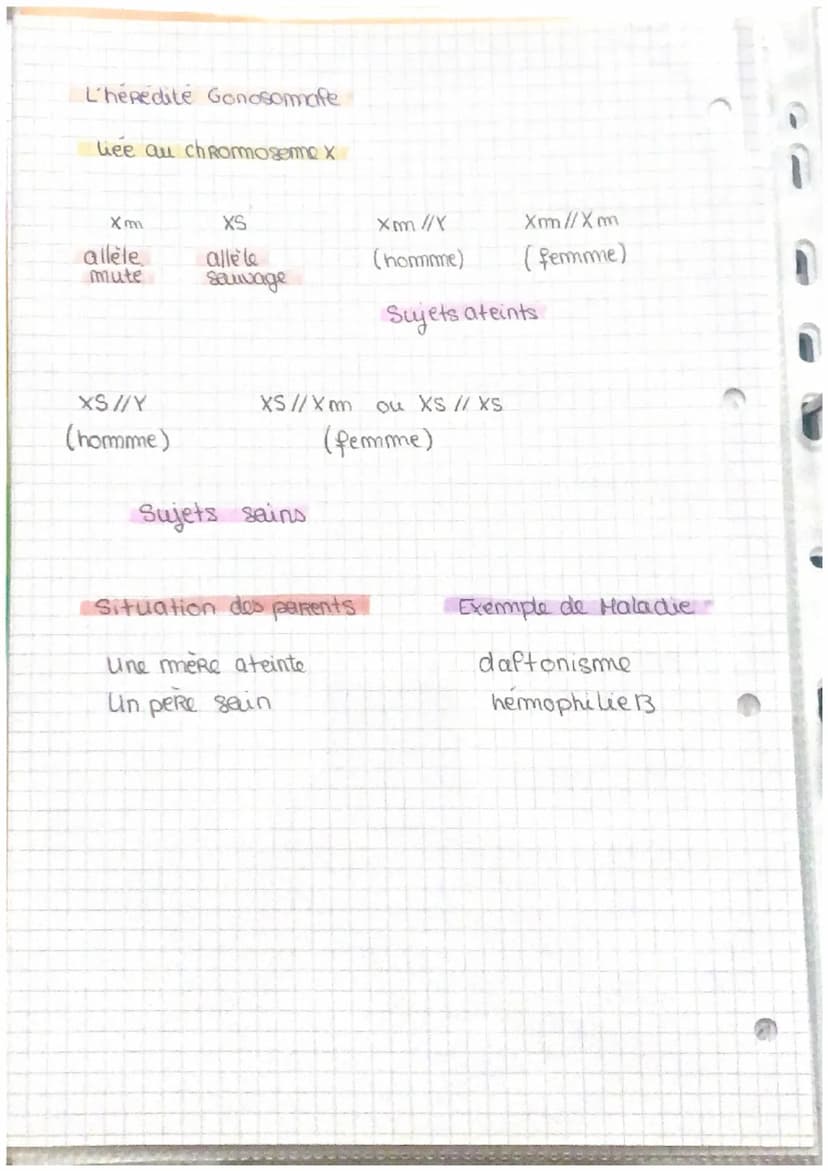 L'hérédité Gonosomale
liée au chromosome X
Xm XS Xm//Y Xm//Xm
allèle allèle (homme) (femme)
mute sauvage
Sujets ateints
XS//Y XS//Xm ou XS // XS
(homme) (femme)
Sujets sains
Situation des parents Exemple de Maladie
Une mère ateinte daltonisme
Un père sain hémophilie B